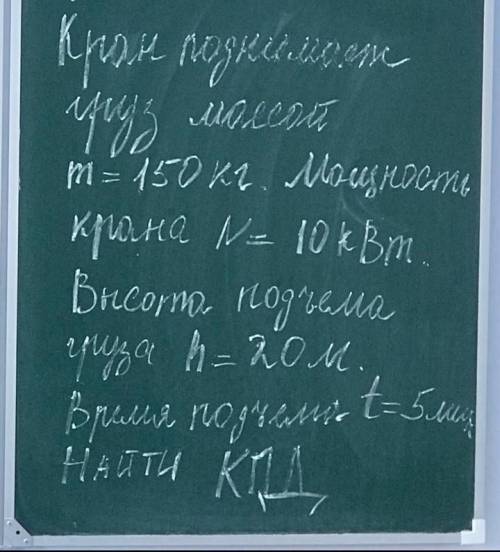 Кран поднимает
груз массой
m = 150 кг. Мощность
крана N = 10 кВт.
Высота подъема
груза h = 20 м.
Время подъема t = 5 мин
Найти КПД